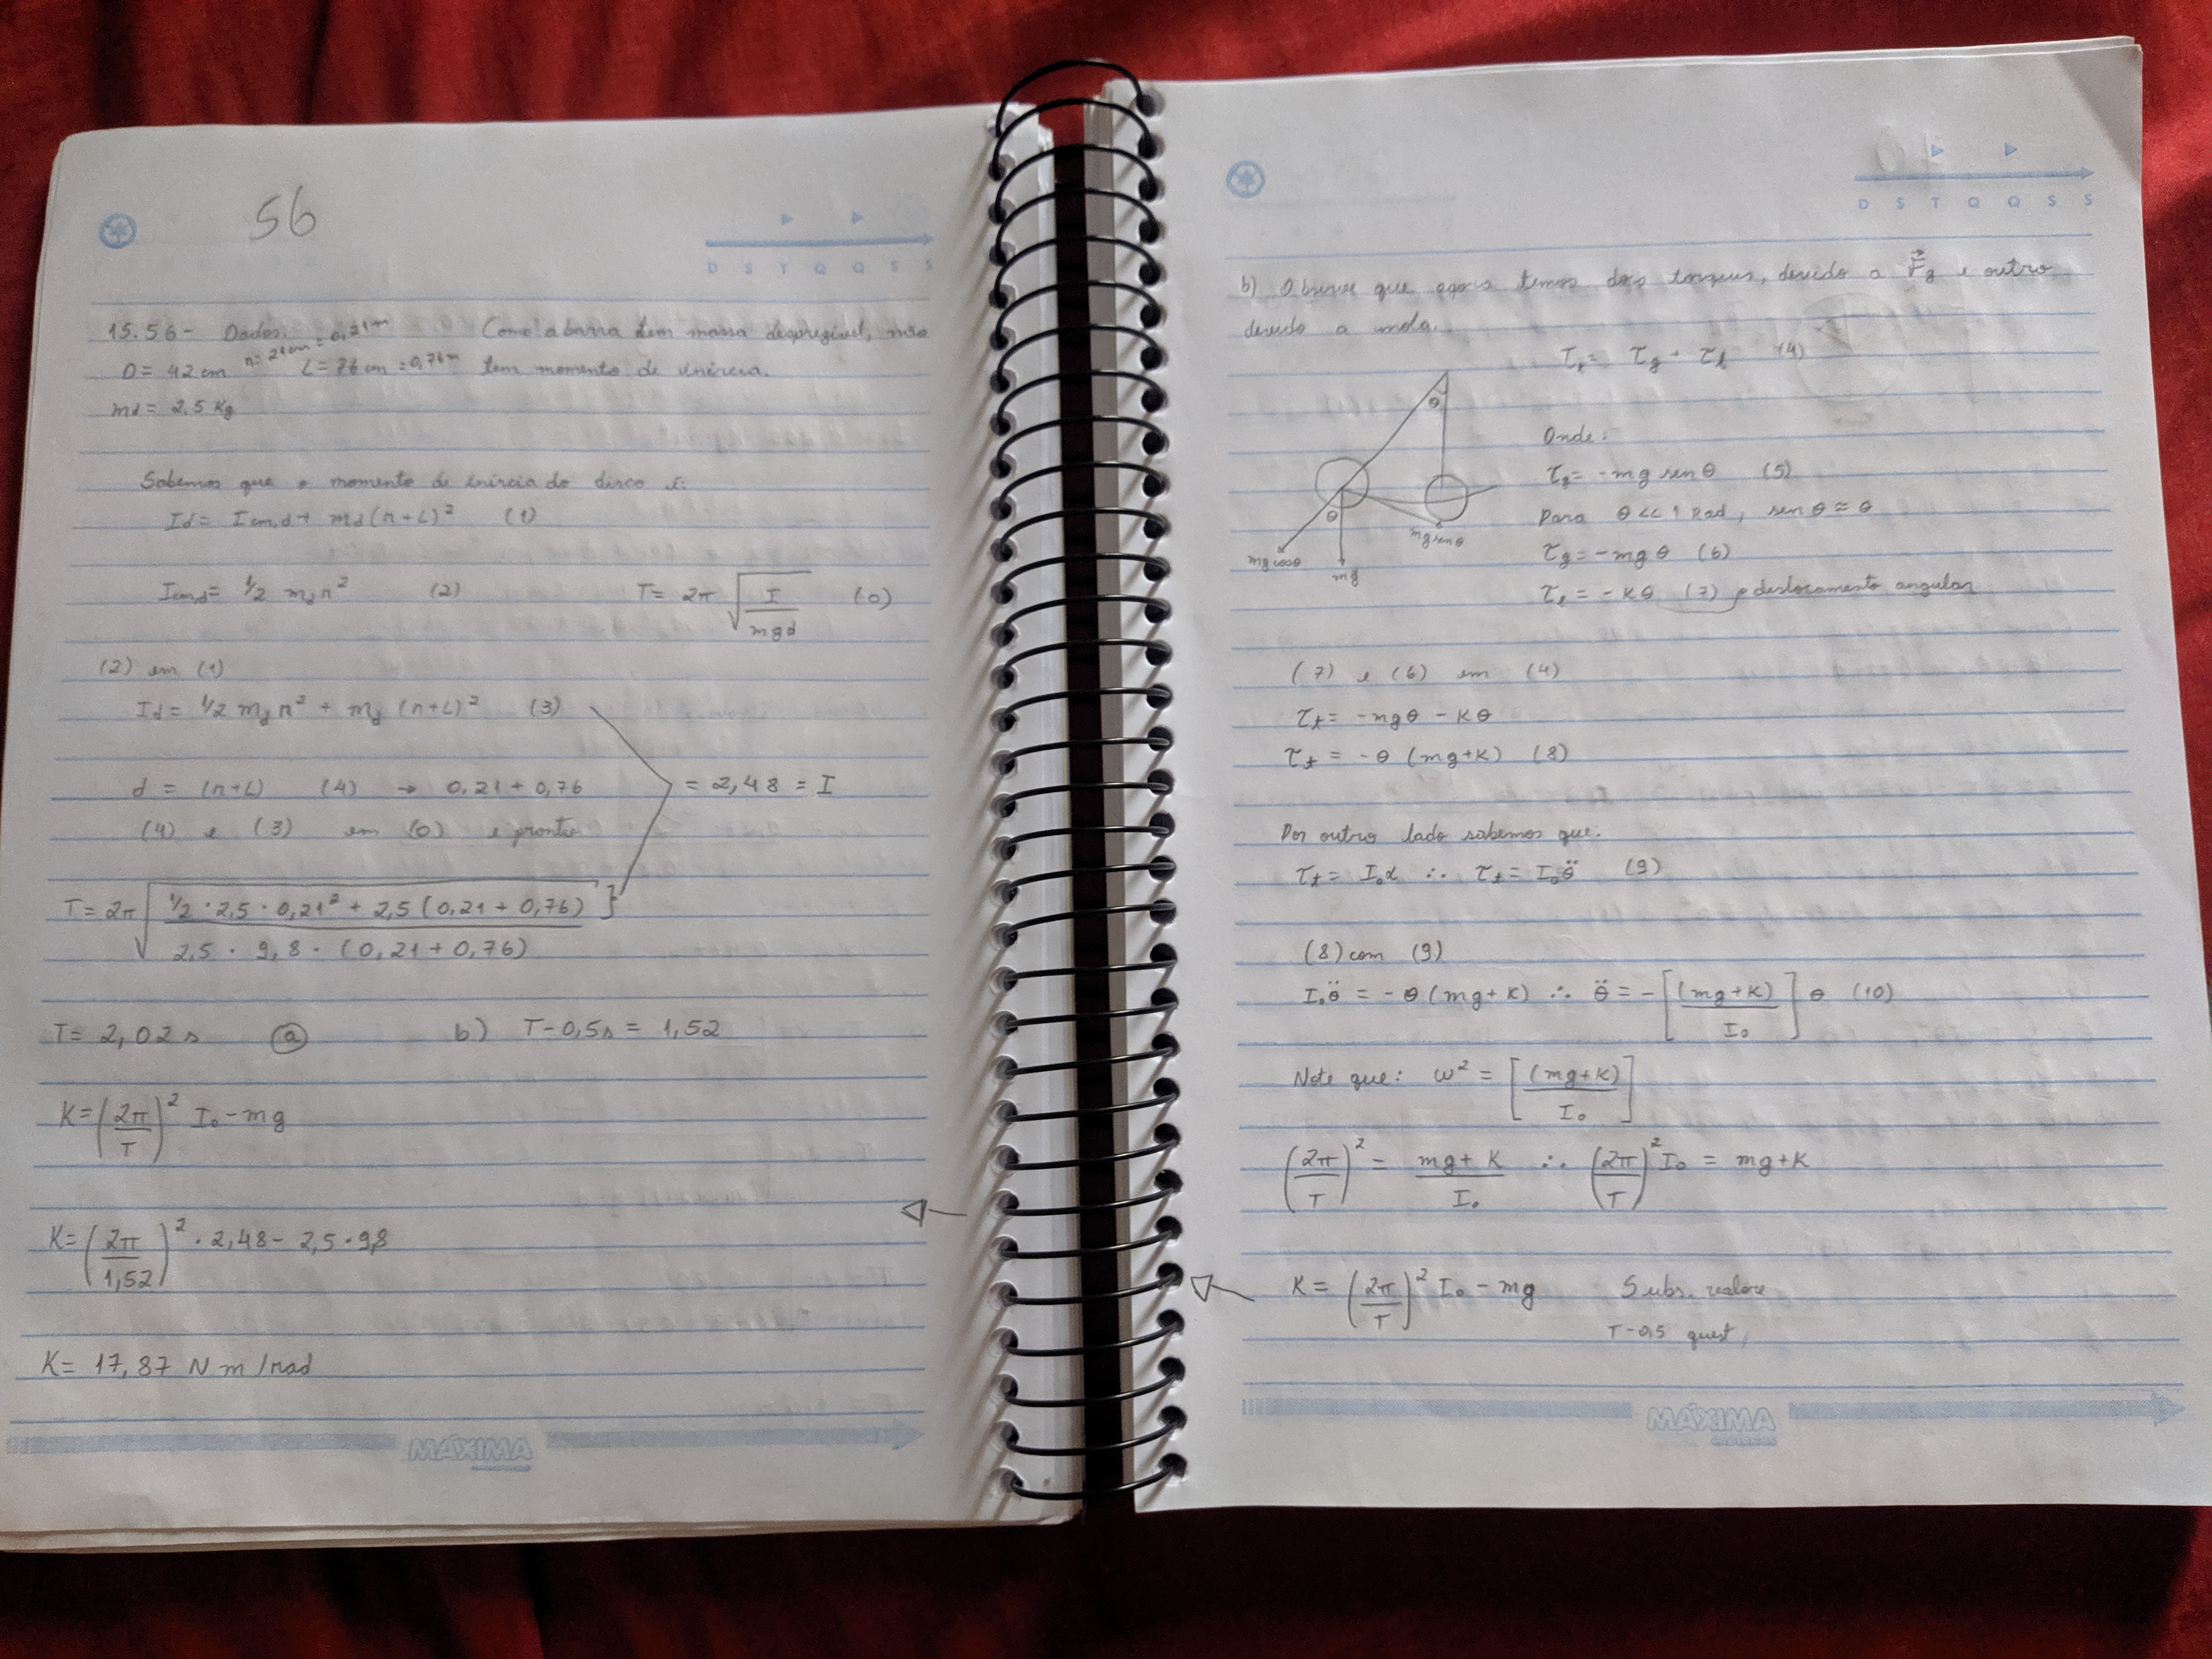 56
D S T Q Q S S
15.56 - Dados: (Como a barra tem massa desprezível, não
D = 42 cm r = 21 cm = 0,21 m L = 76 cm = 0,76 m tem momento de inércia.
md = 2,5 Kg
Sabemos que o momento de inércia do disco é:
Id = Icm,d + md (r + L)² (1)
Icmd = 1/2 md r² (2) T = 2π √(I/mgd) (0)
(2) em (1)
Id = 1/2 md r² + md (r+L)² (3)
d = (r+L) (4) → 0,21 + 0,76 = 2,48 = I
(4) e (3) em (0) e pronto
T = 2π √(1/2 · 2,5 · 0,21² + 2,5 (0,21 + 0,76)² / 2,5 · 9,8 · (0,21 + 0,76))
T = 2,02 s (a) b) T - 0,5 s = 1,52
K = (2π/T)² I₀ - mg
K = (2π/1,52)² · 2,48 - 2,5 · 9,8
K = 17,87 N m/rad
MÁXIMA
D S T Q Q S S
b) Observe que agora temos dois torques, devido a F⃗g e outro
devido a mola.
τt = τg + τk (4)
θ
Onde:
θ
mg cosθ
mg
mg senθ
τg = -mg sen θ (5)
Para θ << 1 Rad, sen θ ≈ θ
τg = -mg θ (6)
τt = -kθ (7) deslocamento angular
(7) e (6) em (4)
τt = -mgθ - kθ
τt = -θ (mg + k) (8)
Por outro lado sabemos que:
τt = I₀α ∴ τt = I₀θ̈ (9)
(8) com (9)
I₀θ̈ = -θ (mg + k) ∴ θ̈ = -[(mg + k)/I₀] θ (10)
Note que: ω² = [(mg + k)/I₀]
(2π/T)² = mg + k/I₀ ∴ (2π/T)² I₀ = mg + k
K = (2π/T)² I₀ - mg Subs. valore
T - 0,5 quest,
MÁXIMA